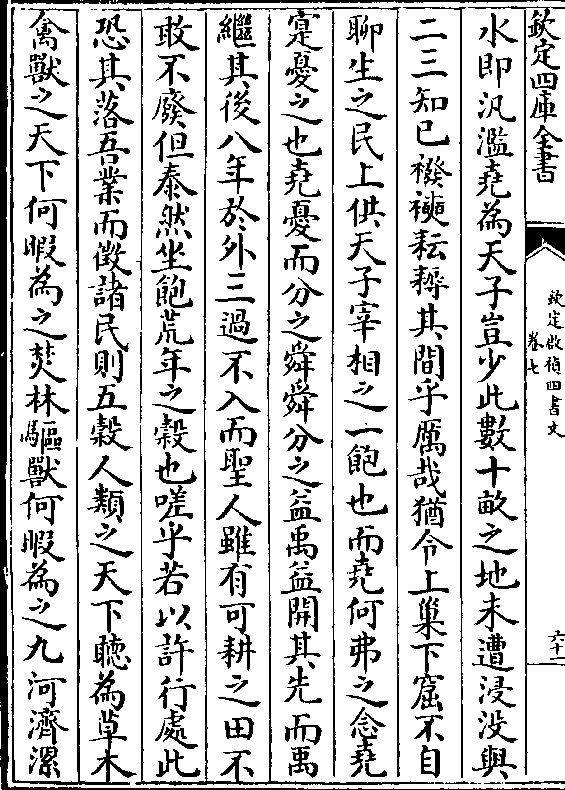 欽定四庫全書
欽定啟禎四書文
卷七
六十一
水即汎濫堯為天子豈少此數十畝之地未遭浸没與
二三知已襏襫耘耨其間乎厲哉猶令上巢下窟不自
聊生之民上供天子宰相之一飽也而堯何弗之念堯
寔憂之也堯憂而分之舜舜分之益禹益開其先而禹
繼其後八年於外三過不入而聖人雖有可耕之田不
敢不廢但泰然坐飽荒年之榖也嗟乎若以許行處此
恐其落吾業而徵諸民則五榖人類之天下聽為草木
禽獸之天下何暇為之焚林驅獸何暇為之九河濟漯